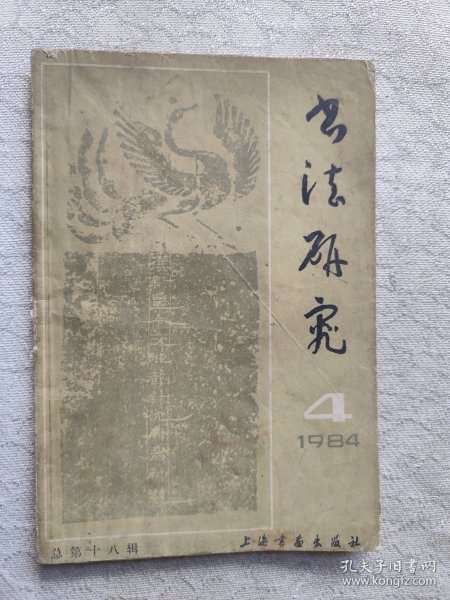 书法研究
4
1984
总第十八辑
上海书画出版社
孔夫子旧书网
www.kongfz.com